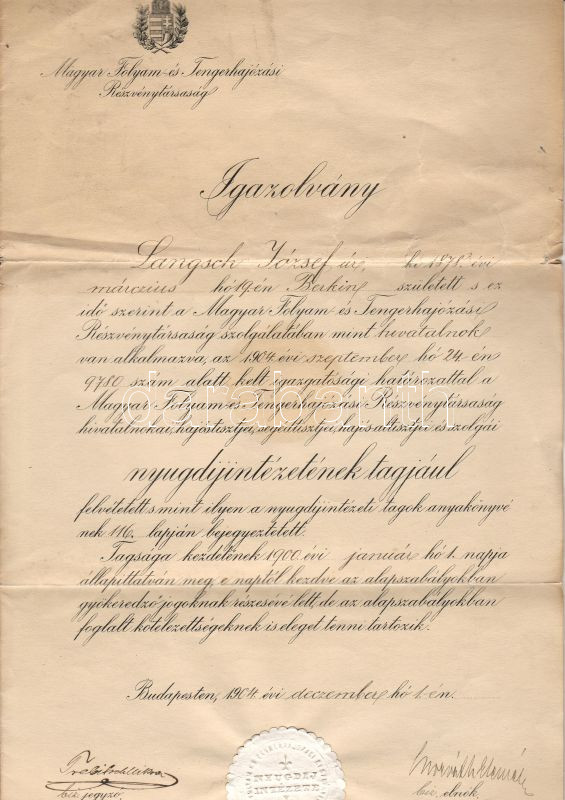 Magyar Folyam-és Tengerhajózási
Részvénytársaság
Igazolvány
Langsch József úr, ki 1878. évi
március hó 19 én született s ez
idő szerint a Magyar Folyam és Tengerhajózási
Részvénytársaság szolgálatában mint hivatalnok
van alkalmazva, az 1904. évi szeptember hó 24. én
9780 szám alatt kelt igazgatósági határozattal a
Magyar Folyam-és Tengerhajózási Részvénytársaság
hivatalnokai, hajóstisztjei, segédtisztjei, hajós altisztjei és szolgái
nyugdíjintézetének tagjául
felvétetett s mint ilyen a nyugdíjintézeti tagok anyakönyvé
nek 116. lapján bejegyeztetett.
Tagsága kezdetének 1900. évi január hó 1. napja
állapittatván meg, e naptól kezdve az alapszabályokban
gyökeredző jogoknak részesévé lett, de az alapszabályokban
foglalt kötelezettségeknek is eleget tenni tartozik.
Budapesten, 1904. évi deczember hó 1. én.
NYUGDÍJ
INTÉZETE
biz. jegyző.
biz. elnök.
darabanth